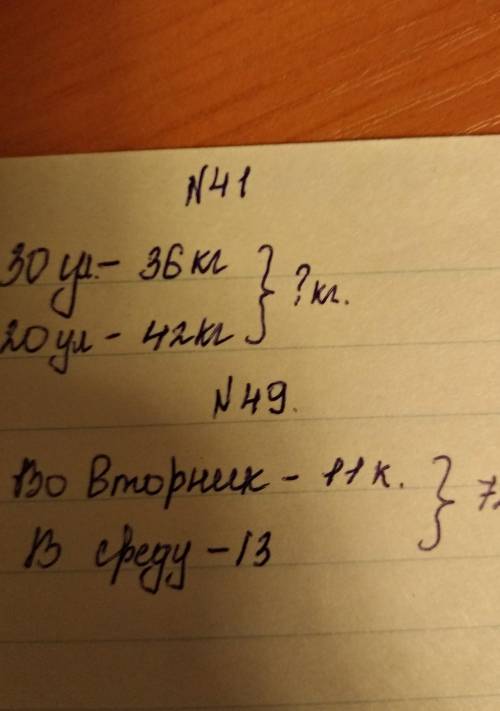 N41
30 ул. - 36 кг
20 ул - 42 кг } ? кг.
N49.
Во вторник - 11 к.
В среду - 13 }